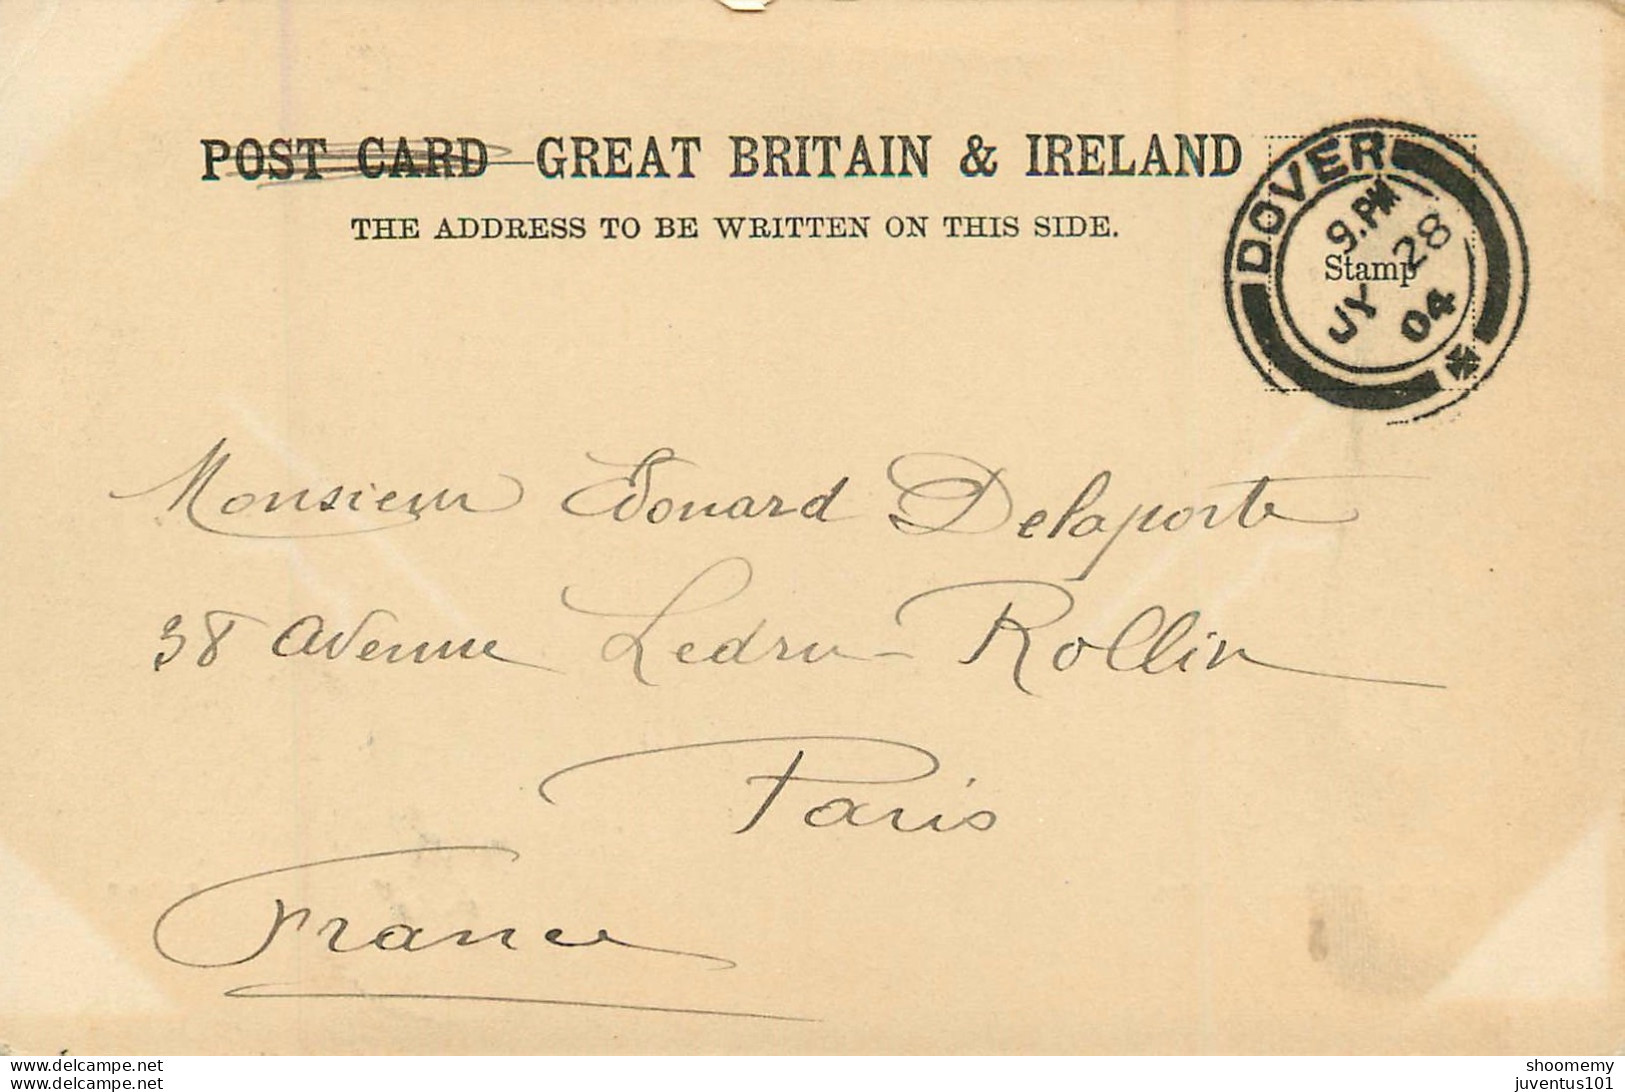 POST CARD GREAT BRITAIN & IRELAND
THE ADDRESS TO BE WRITTEN ON THIS SIDE.
DOVER
9.PM
28
Stamp
JY 04
Monsieur Edouard Delaporte
38 Avenue Ledru-Rollin
Paris
France
www.delcampe.net
www.delcampe.net
shoomemy
juventus101